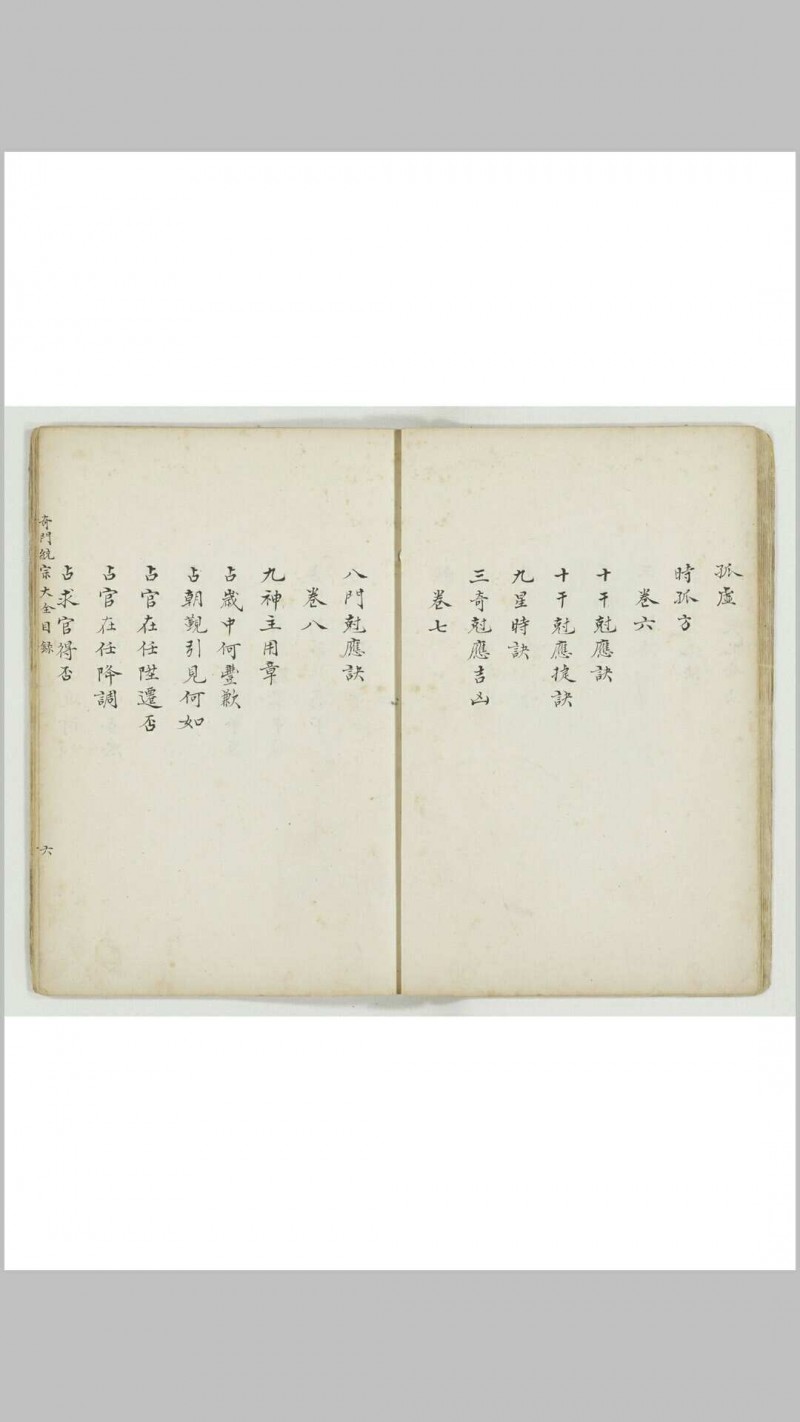 孤虛
時孤方
卷六
十干尅應訣
十干尅應捷訣
九星時訣
三奇尅應吉凶
卷七
八門尅應訣
卷八
九神主用章
占歲中何豐歉
占朝覲引見何如
占官在任陞遷否
占官在任降調
占求官得否
奇門統宗大全目錄
六